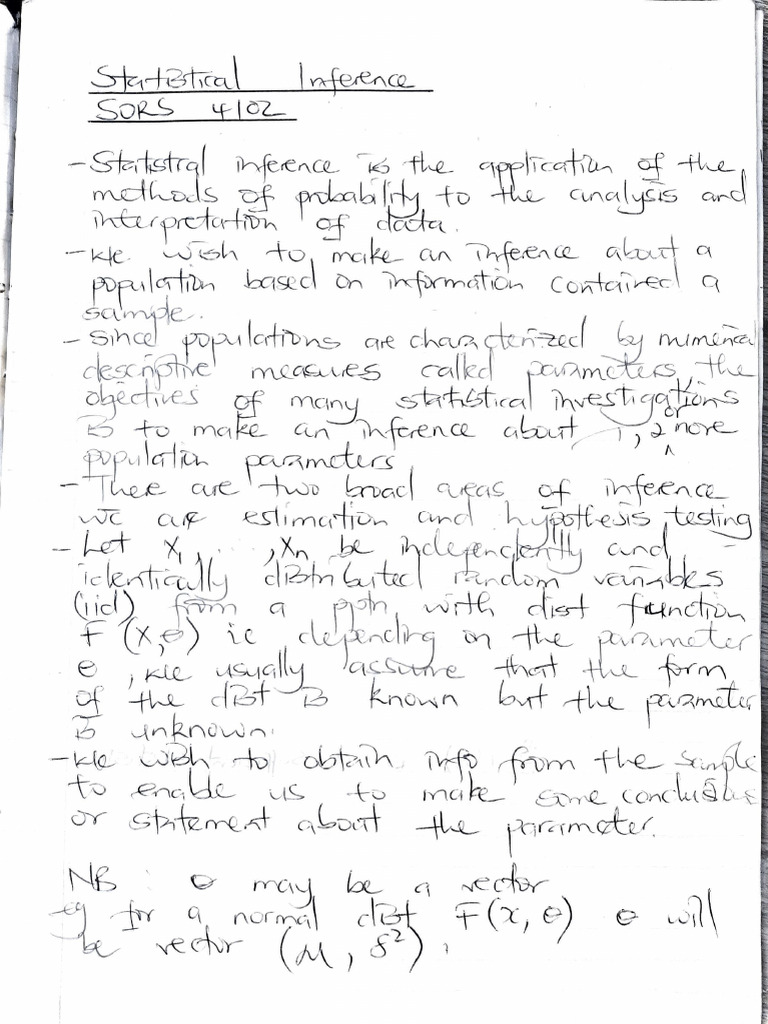 Statistical Inference
SORS 4102
- Statistral inference is the application of the
methods of probability to the analysis and
interpretation of data.
- We wish to make an inference about a
population based on information contained a
sample.
- Since populations are characterized by numerical
descriptive measures called parameters, the
objectives of many statistical investigations
is to make an inference about 1, 2 or more
population parameters
- There are two broad areas of inference
we are estimation and hypothesis testing
- Let X1, . . . . , Xn be independently and
identically distributed random variables
(iid) from a ppln with dist function
F (X, θ) ie depending on the parameter
θ, We usually assume that the form
of the dist is known but the parameter
is unknown.
- We wish to obtain info from the sample
to enable us to make some conclusions
or statement about the parameter.
NB : θ may be a vector
eg for a normal dist F(x, θ) θ will
be vector (μ, δ²).